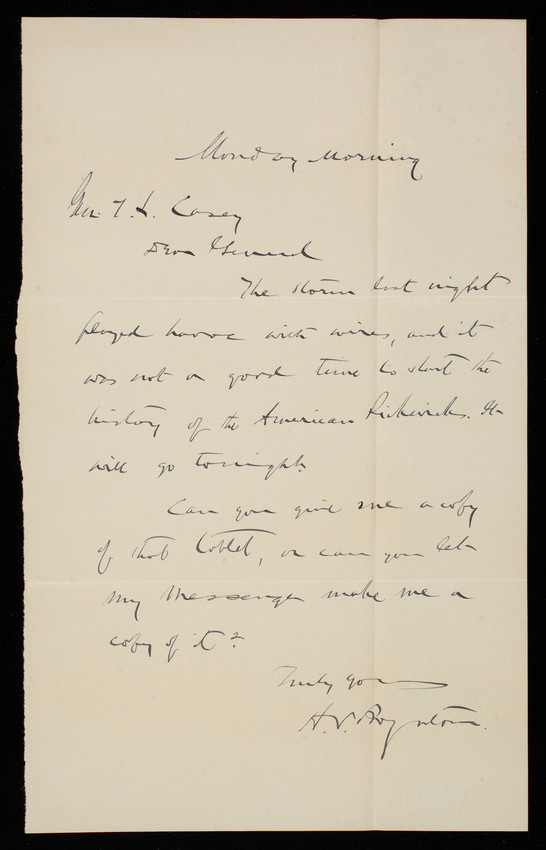 Monday Morning
Gen. T. L. Casey
Dear General
The storm last night
played havoc with wires, and it
was not a good time to start the
history of the American Pickwicks. It
will go tonight.
Can you give me a copy
of that Tablet, or can you let
my messenger make me a
copy of it?
Truly yours
H. V. Boynton.